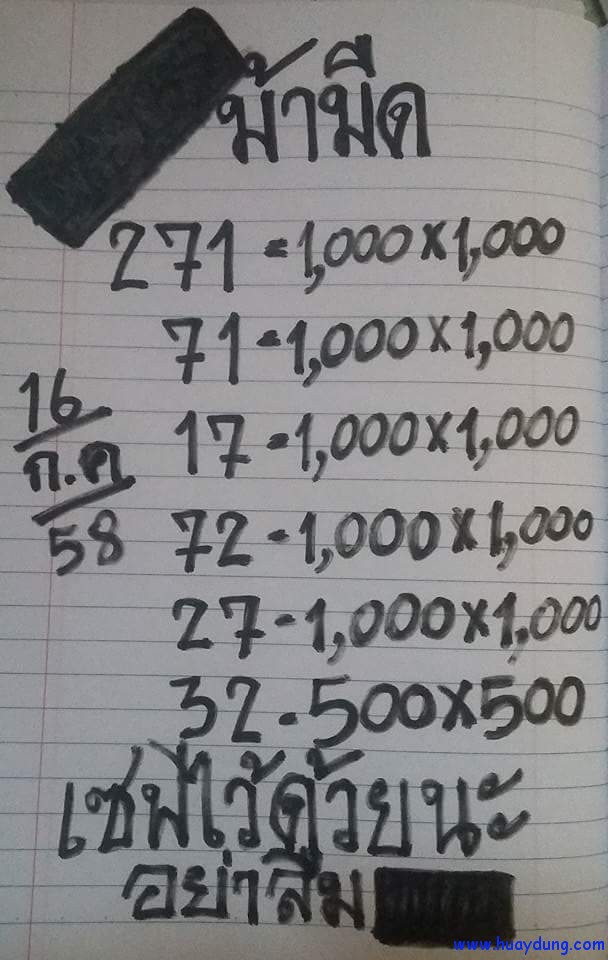 ม้ามืด
271 = 1,000 x 1,000
71 = 1,000 x 1,000
17 = 1,000 x 1,000
72 - 1,000 x 1,000
27 - 1,000 x 1,000
32 - 500 x 500
16
ก.ค
58
เซฟไว้ด้วยนะ
อย่าลืม
www.huaydung.com